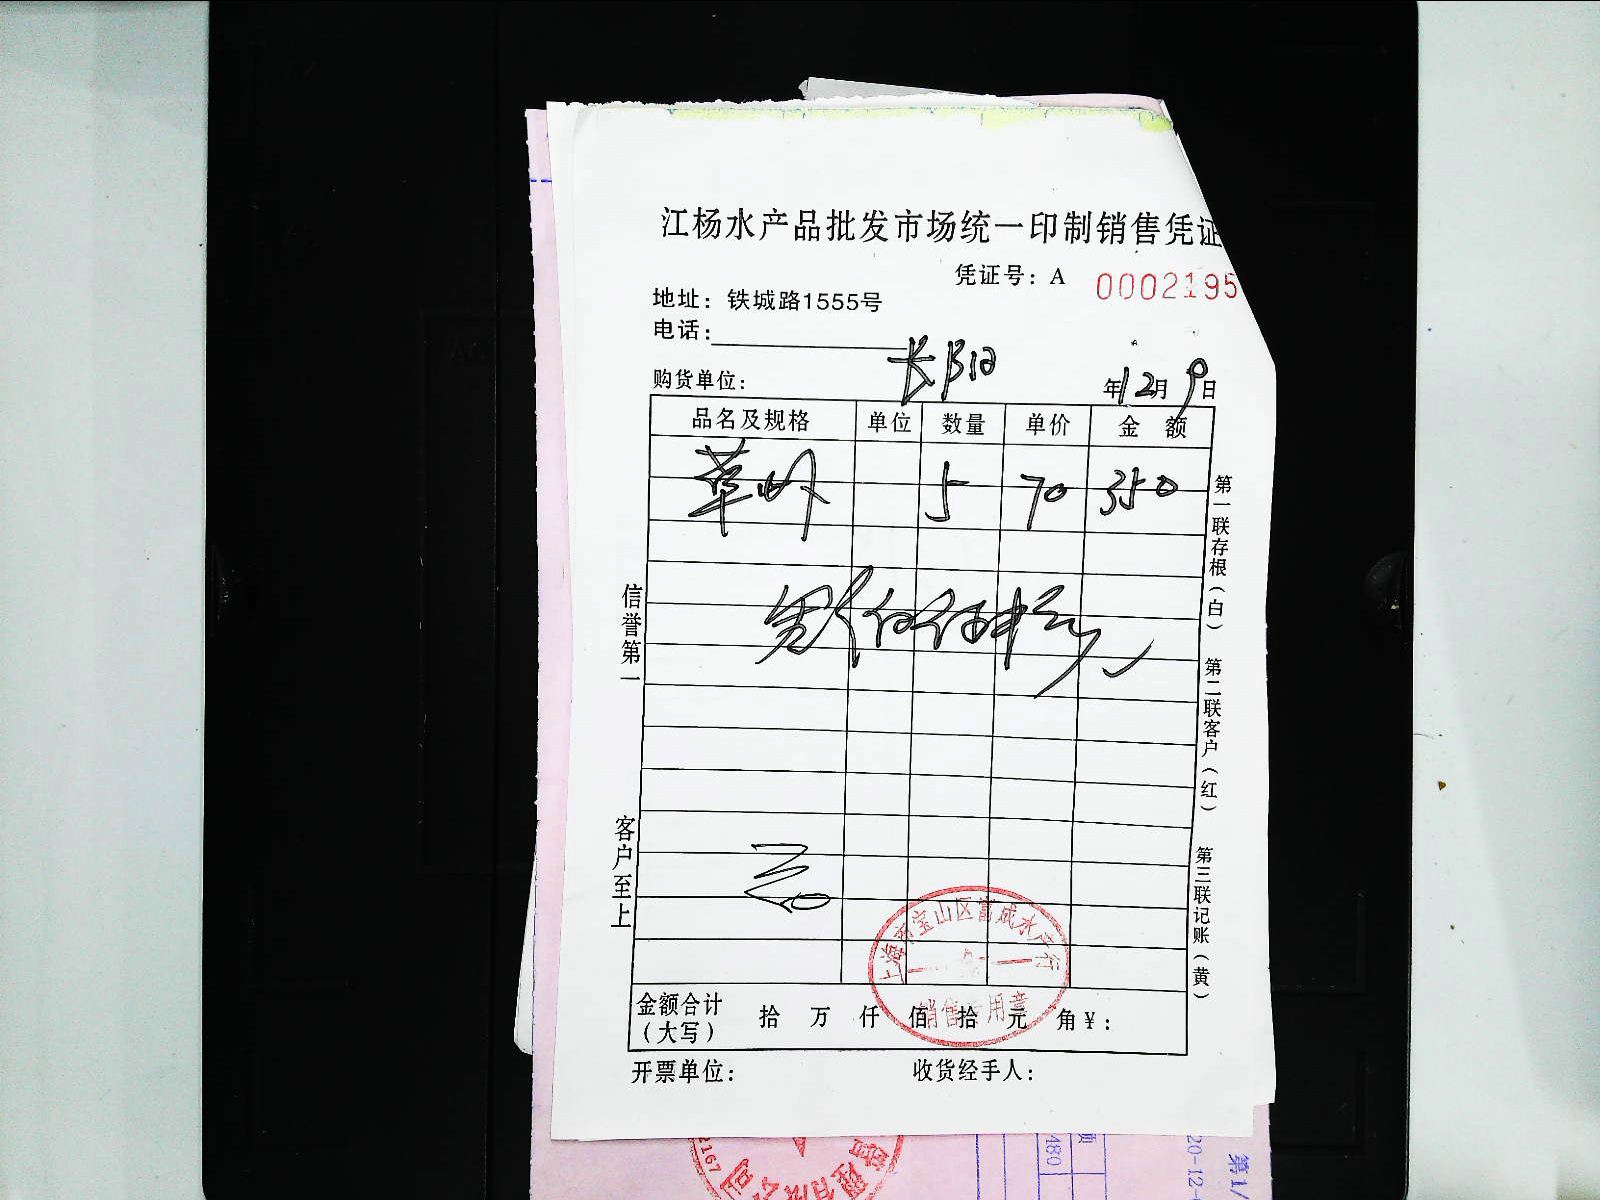 江杨水产品批发市场统一印制销售凭证
凭证号：A 0002195
地址：铁城路1555号
电话：
长阳
购货单位： 年12月9日
品名及规格 单位 数量 单价 金 额
草虾 5 70 350
信誉第一
客户至上
第一联存根（白） 第二联客户（红） 第三联记账（黄）
上海市宝山区富成水产行
销售专用章
金额合计（大写） 拾 万 仟 佰 拾 元 角 ￥：
开票单位： 收货经手人：
2167
480
20-12-
第1/